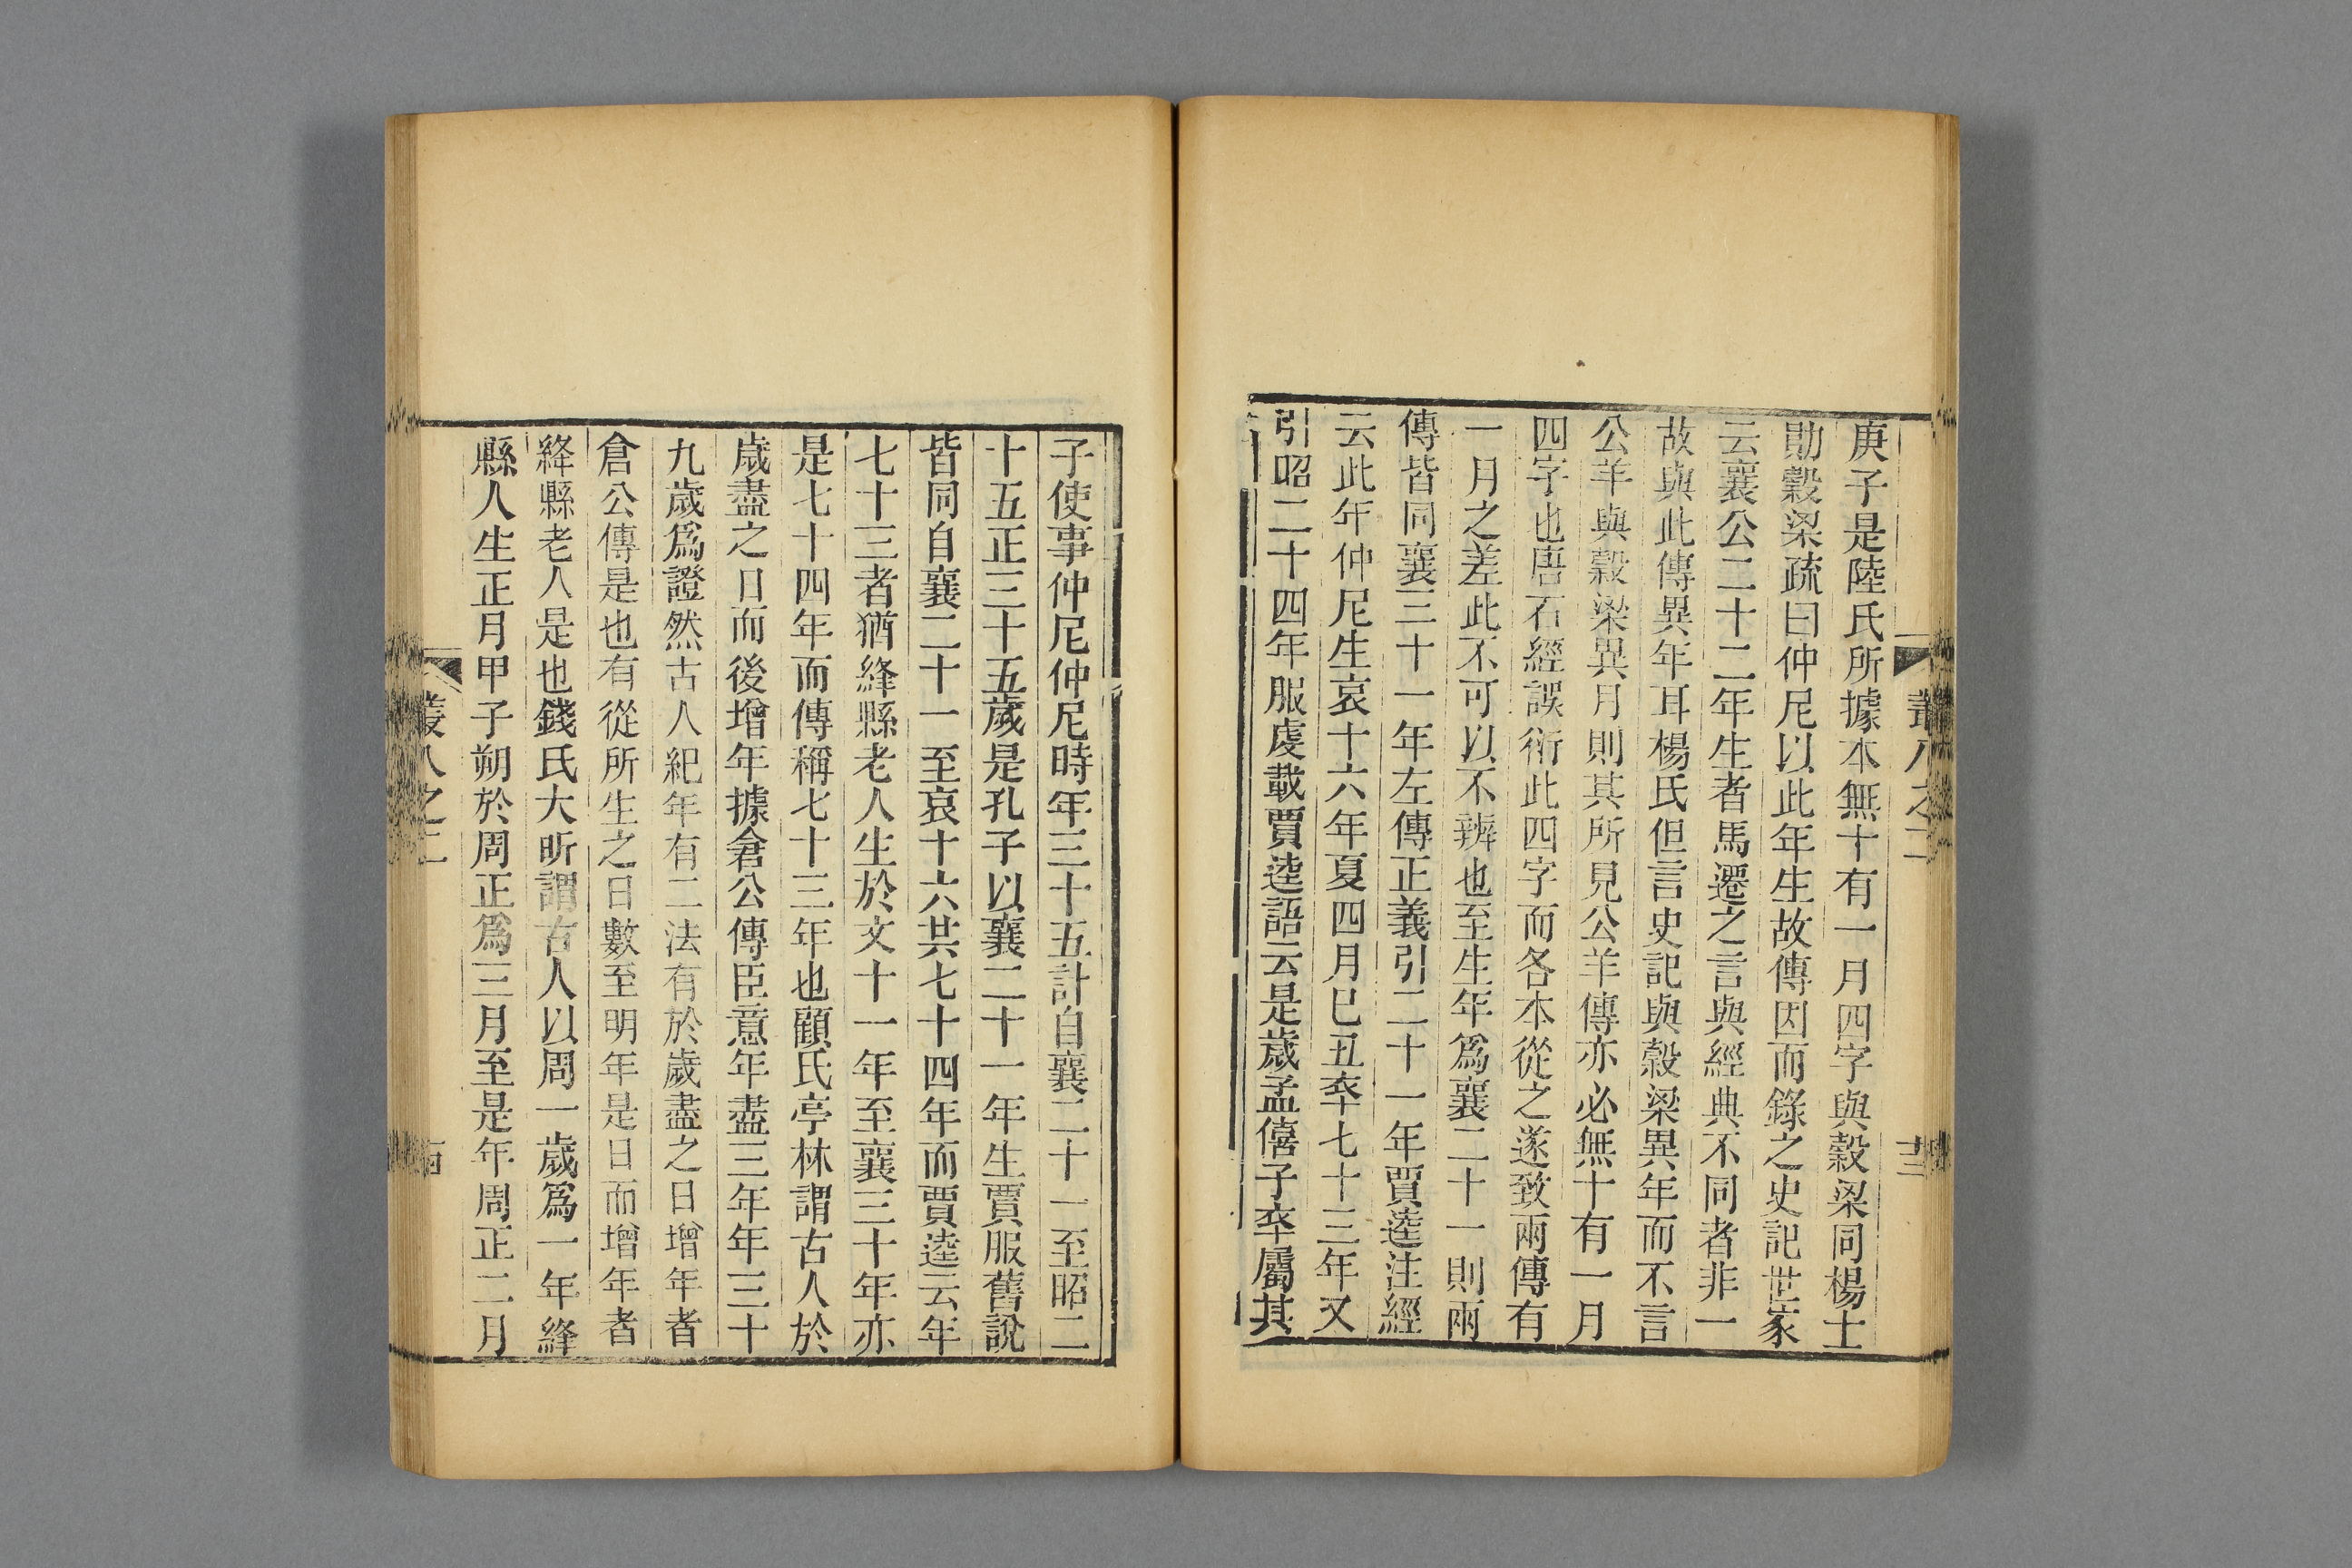 叢八之二
十三
庚子是陸氏所據本無十有一月四字與穀梁同楊士
勛穀梁疏曰仲尼以此年生故傳因而錄之史記世家
云襄公二十二年生者馬遷之言與經典不同者非一
故與此傳異年耳楊氏但言史記與穀梁異年而不言
公羊與穀梁異月則其所見公羊傳亦必無十有一月
四字也唐石經誤衍此四字而各本從之遂致兩傳有
一月之差此不可以不辨也至生年爲襄二十一則兩
傳皆同襄三十一年左傳正義引二十一年賈逵注經
云此年仲尼生哀十六年夏四月巳丑卒七十三年又
引昭二十四年服虔載賈逵語云是歲孟僖子卒屬其
子使事仲尼仲尼時年三十五計自襄二十一至昭二
十五正三十五歲是孔子以襄二十一年生賈服舊說
皆同自襄二十一至哀十六共七十四年而賈逵云年
七十三者猶絳縣老人生於文十一年至襄三十年亦
是七十四年而傳稱七十三年也顧氏亭林謂古人於
歲盡之日而後增年據倉公傳臣意年盡三年年三十
九歲爲證然古人紀年有二法有於歲盡之日增年者
倉公傳是也有從所生之日數至明年是日而增年者
絳縣老人是也錢氏大昕謂古人以周一歲爲一年絳
縣人生正月甲子朔於周正爲三月至是年周正二月
叢八之二
十四